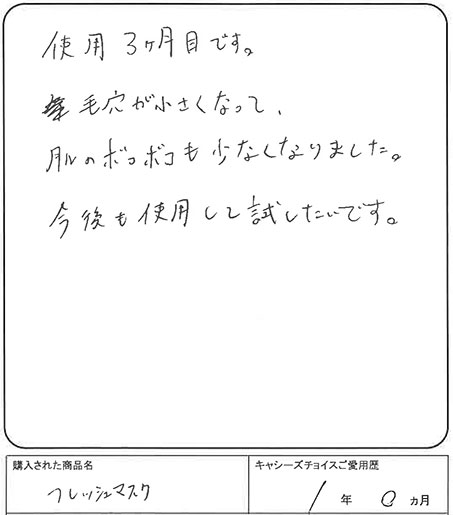 使用3ヶ月目です。
毛穴が小さくなって、
肌のボコボコも少なくなりました。
今後も使用して試したいです。
購入された商品名
フレッシュマスク
キャシーズチョイスご愛用歴
1年0ヵ月